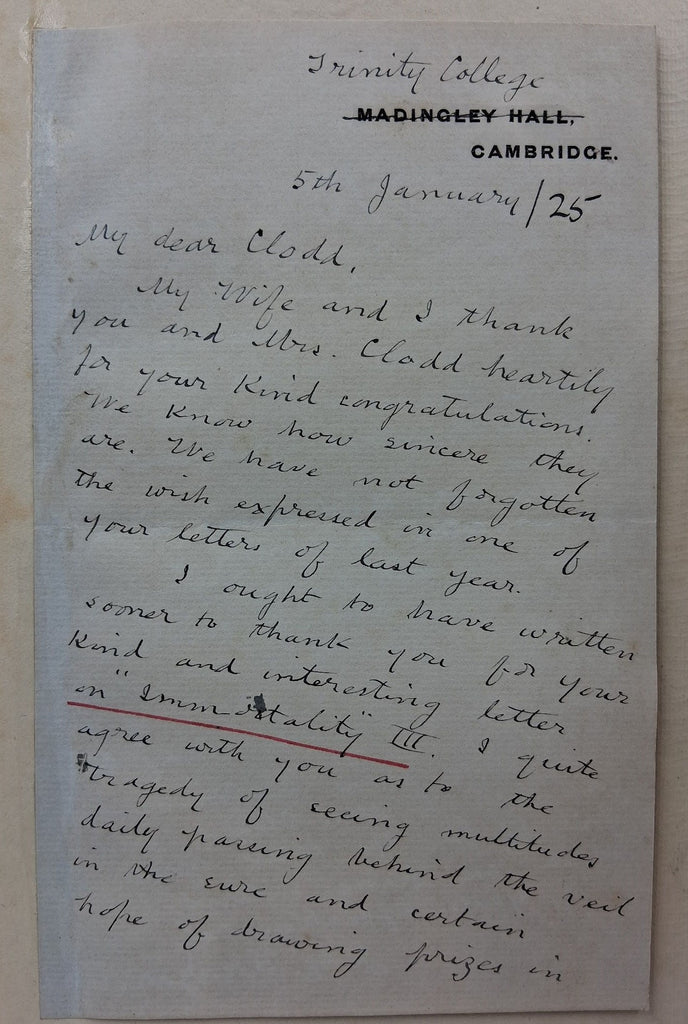 Trinity College
MADINGLEY HALL,
CAMBRIDGE.
5th January/25
My dear Clodd,
My Wife and I thank
you and Mrs. Clodd heartily
for your kind congratulations.
We know how sincere they
are. We have not forgotten
the wish expressed in one of
your letters of last year.
I ought to have written
sooner to thank you for your
kind and interesting letter
on "Immortality" III. I quite
agree with you as to the
tragedy of seeing multitudes
daily passing behind the veil
in the sure and certain
hope of drawing prizes in